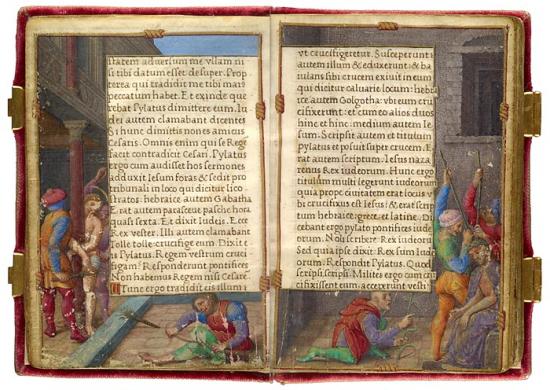 statem adversum me ullam ni
si tibi datum esset desuper. Prop
terea qui tradidit me tibi mai9
peccatum habet. Et exinde que
rebat Pylatus dimittere eum. Iu
dei autem clamabant dicentes
Si hunc dimittis non es amicus
Cesaris. Omnis enim qui se Rege
facit contradicit Cesari. Pylatus
ergo cum audisset hos sermones
adduxit Iesum foras: & sedit pro
tribunali in loco qui dicitur lico
stratos: hebraice autem Gabatha
Erat autem parasceue pasche hora
quasi sexta. Et dixit Iudeis. Ecce
Rex vester. Illi autem clamabant
Tolle tolle: crucifige eum. Dixit e
is Pylatus. Regem vestrum cruci
figam? Responderunt pontifices
Non habemus Regem nisi Cesare
Tunc ergo tradidit eis illum:
vt crucifigeretur. Susceperunt
autem illum & eduxerunt: & ba
iulans sibi crucem exiuit in eum
qui dicitur caluarie locum: hebra
ice autem Golgotha: vbi eum cruci
cifixerunt: et cum eo alios duos
hinc et hinc: medium autem Ie
sum. Scripsit autem et titulum
pylatus et posuit super crucem. E
rat autem scriptum. Iesus naza
renus Rex iudeorum. Hunc ergo
titulum multi legerunt iudeorum
quia prope ciuitatem erat locus v
bi crucifixus est Iesus: & erat scrip
tum hebraice: grece, et latine. Di
cebant ergo pylato pontifices iude
orum. Noli scribere Rex iudeorum
Sed quia ipse dixit: Rex sum Iude
orum. Respondit Pylatus. Quod
scripsi: scripsi. Milites ergo cum cru
cifixissent eum, acceperunt vesti